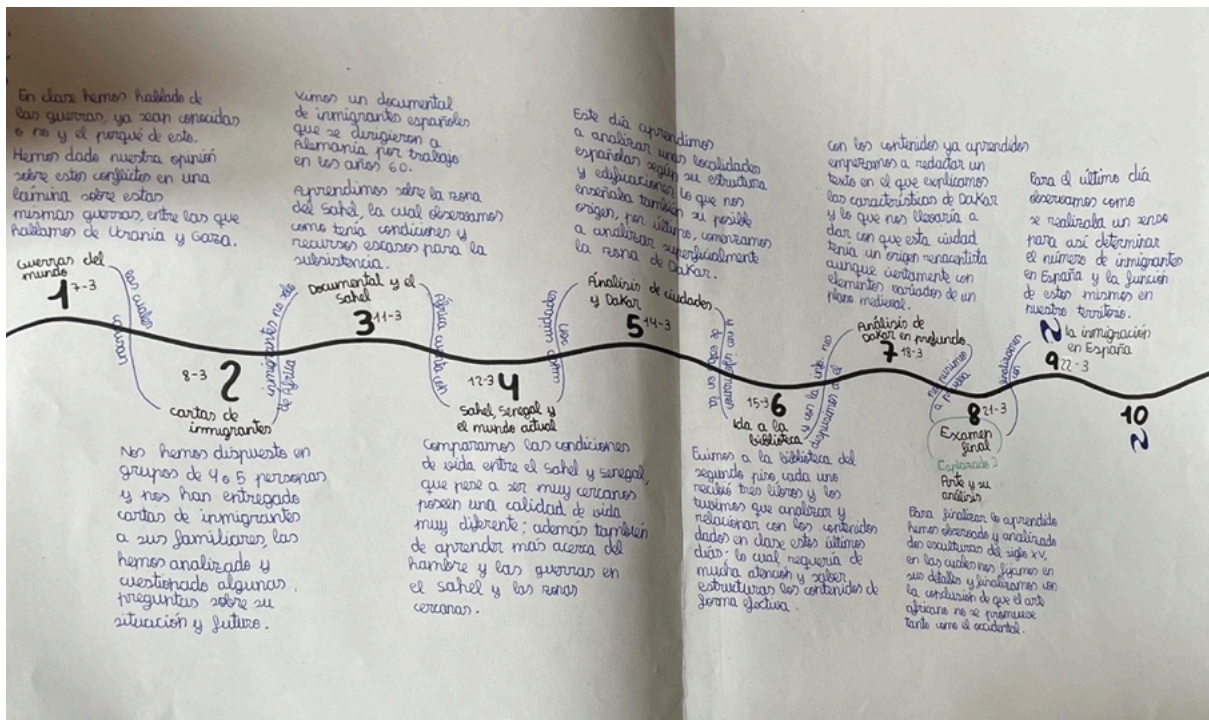 En clase hemos hablado de
las guerras, ya sean conocidas
o no y el porqué de esto.
Hemos dado nuestra opinión
sobre estos conflictos en una
lámina sobre estas
mismas guerras, entre las que
hablamos de Ucrania y Gaza.
Guerras del
mundo
1 7-3
las cuales
causan
8-3 2
cartas de
inmigrantes
Nos hemos dispuesto en
grupos de 4 o 5 personas
y nos han entregado
cartas de inmigrantes
a sus familiares, las
hemos analizado y
cuestionado algunas
preguntas sobre su
situación y futuro.
inmigrantes no solo
de África
Vimos un documental
de inmigrantes españoles
que se dirigieron a
Alemania por trabajo
en los años 60.
Aprendimos sobre la zona
del Sahel, la cual observamos
como tenía condiciones y
recursos escasos para la
subsistencia.
Documental y el
Sahel
3 11-3
África cuenta con
12-3 4
Sahel, Senegal y
el mundo actual
Comparamos las condiciones
de vida entre el Sahel y Senegal,
que pese a ser muy cercanos
poseen una calidad de vida
muy diferente; además también
de aprender más acerca del
hambre y las guerras en
el Sahel y las zonas
cercanas.
con
muchas ciudades
Este día aprendimos
a analizar unas localidades
españolas según su estructura
y edificaciones lo que nos
enseñaba también su posible
origen, por último, comenzamos
a analizar superficialmente
la zona de Dakar.
Análisis de ciudades
y Dakar
5 14-3
y nos informamos
de esto en la
15-3 6
Ida a la
biblioteca
Fuimos a la biblioteca del
segundo piso, cada uno
recibió tres libros y los
tuvimos que analizar y
relacionar con los contenidos
dados en clase estos últimos
días; lo cual requería de
mucha atención y saber
estructuras los contenidos de
forma efectiva.
con la que nos
Con los contenidos ya aprendidos
empezamos a redactar un
texto en el que explicamos
las características de Dakar
y lo que nos llevaría a
dar con que esta ciudad
tenía un origen renacentista
aunque ciertamente con
elementos variados de un
plano medieval.
Análisis de
Dakar en profundo
7 18-3
a prueba
8 21-3
Examen
final
Arte y su
análisis
Para finalizar lo aprendido
hemos observado y analizado
dos esculturas del siglo XV,
en las cuales nos fijamos en
sus detalles y finalizamos con
la conclusión de que el arte
africano no se promueve
tanto como el occidental.
Para el último día
observamos como
se realizaba un censo
para así determinar
el número de inmigrantes
en España y la función
de estos mismos en
nuestro territorio.
la inmigración
en España
9 22-3
10